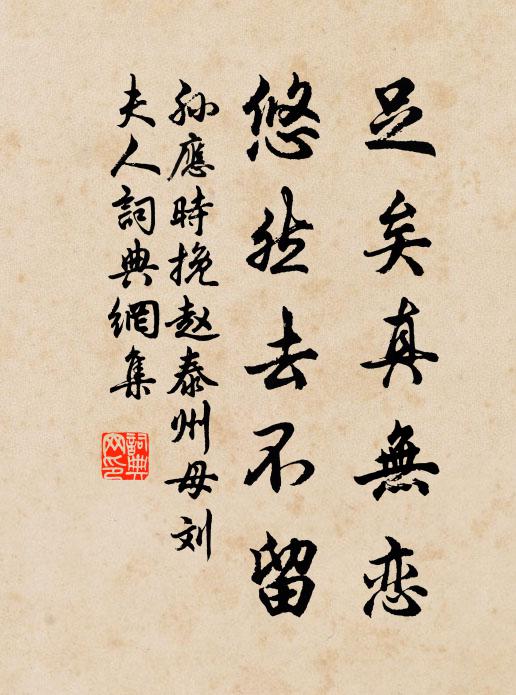 足矣真無恋
悠然去不留
孙應時挽赵泰州母刘
夫人詞典網集
詞典
网印